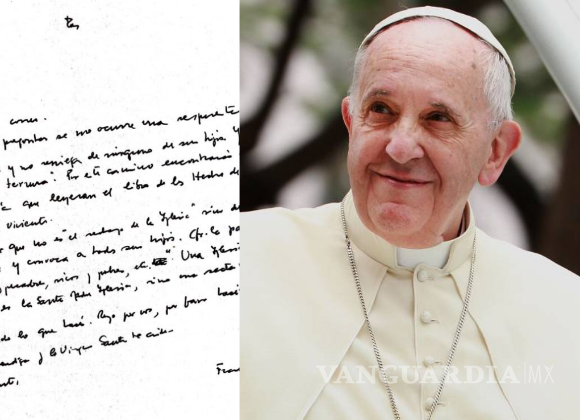 correo.
preguntas se me ocurre una respuesta
y no reniega de ninguno de sus hijos. y
ternura". Por este camino encontrarás
que leyeran el libro de los Hechos de
viviente.
que no es "el rechazo de la Iglesia" sino de
y convoca a todos sus hijos. Cfr. la
ricos y pobres, etc. "Una Iglesia
es la Santa Madre Iglesia, sino una secta
do lo que hacés. Rezo por vos, por favor hacé
y la Virgen Santa te cuide.
Fran
VANGUARDIA|MX